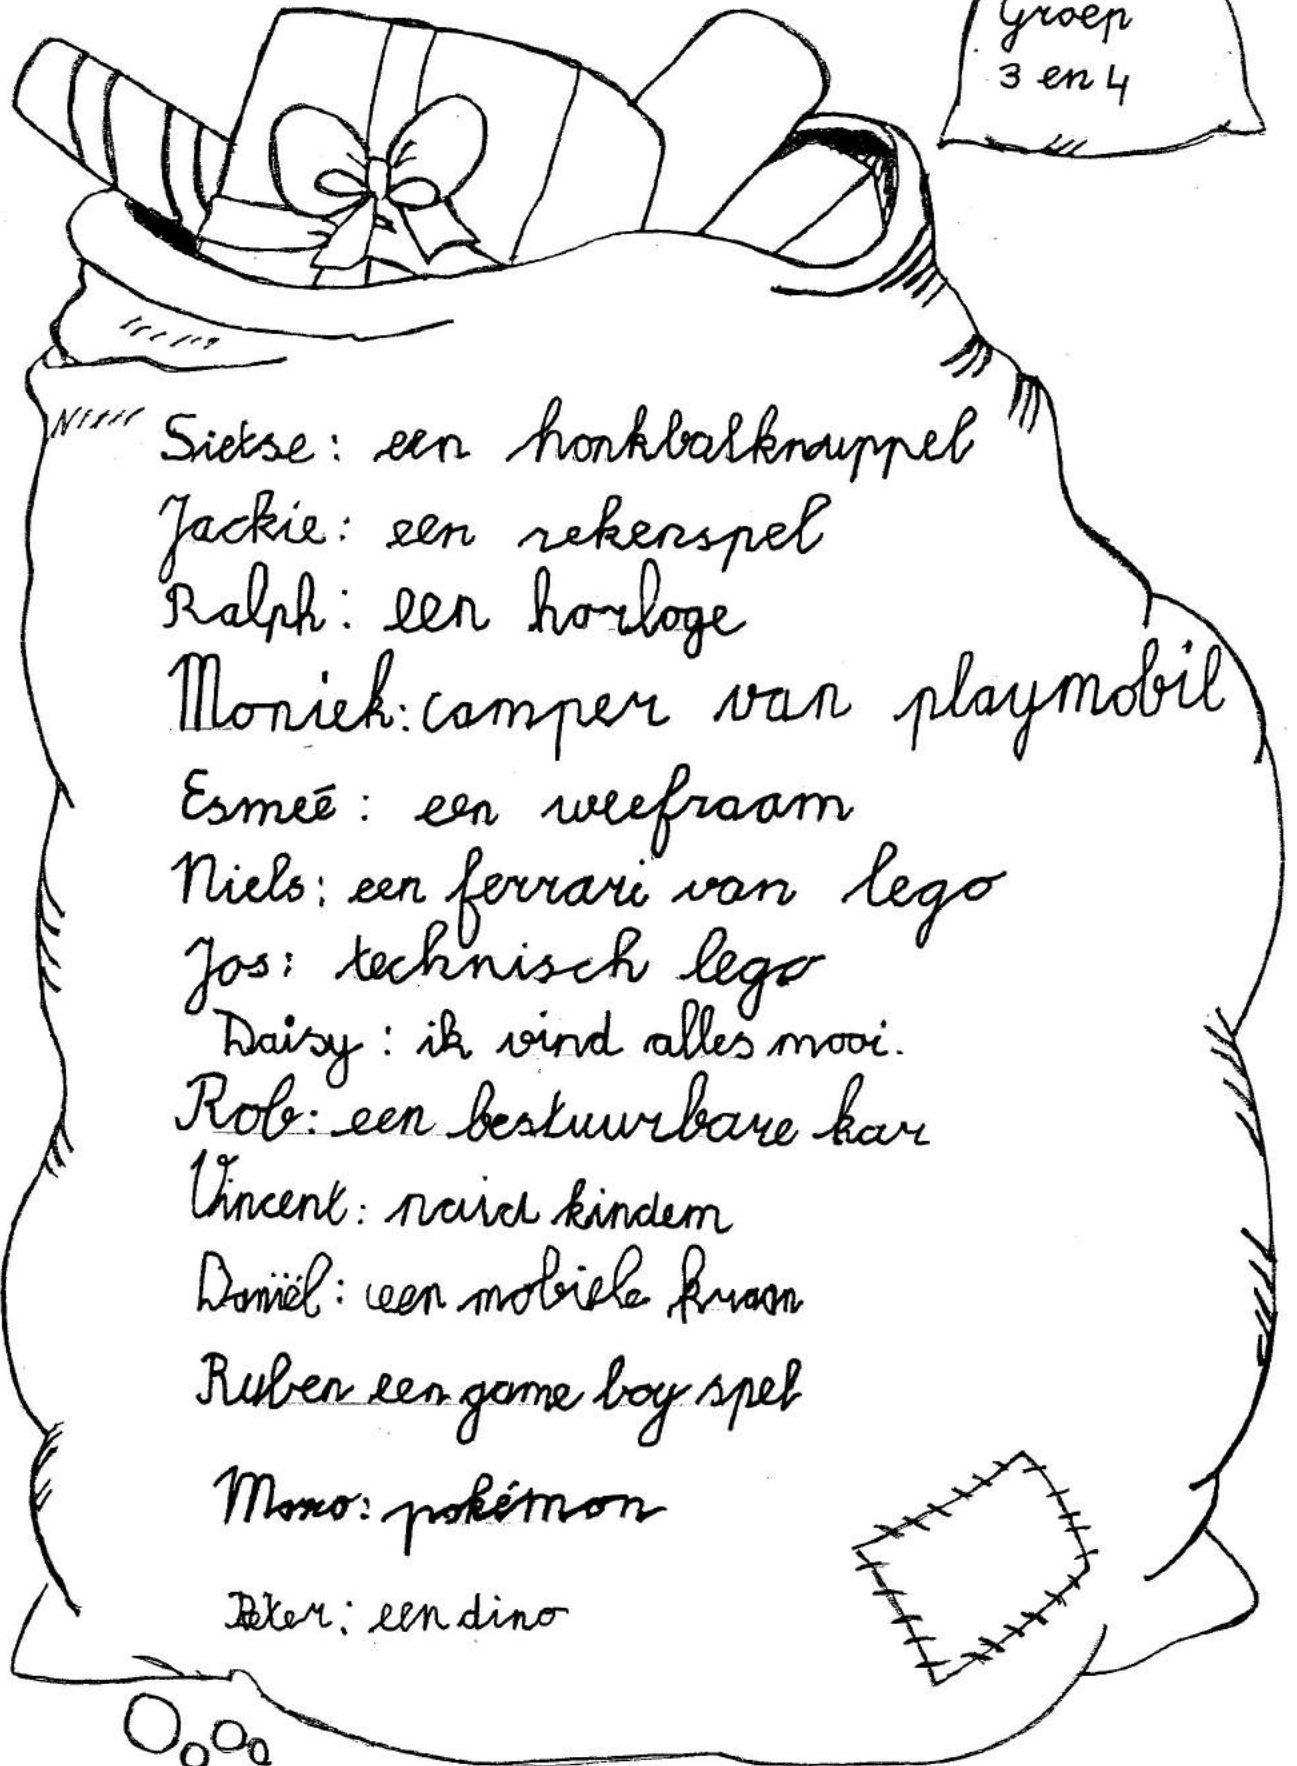 Groep
3 en 4
Sietse: een honkbalknuppel
Jackie: een rekenspel
Ralph: een horloge
Moniek: camper van playmobil
Esmeé: een weefraam
Niels: een ferrari van lego
Jos: technisch lego
Daisy: ik vind alles mooi.
Rob: een bestuurbare kar
Vincent: kindem
Daniël: een mobiele kraan
Ruben een game boy spel
pokémon
Peter: een dino